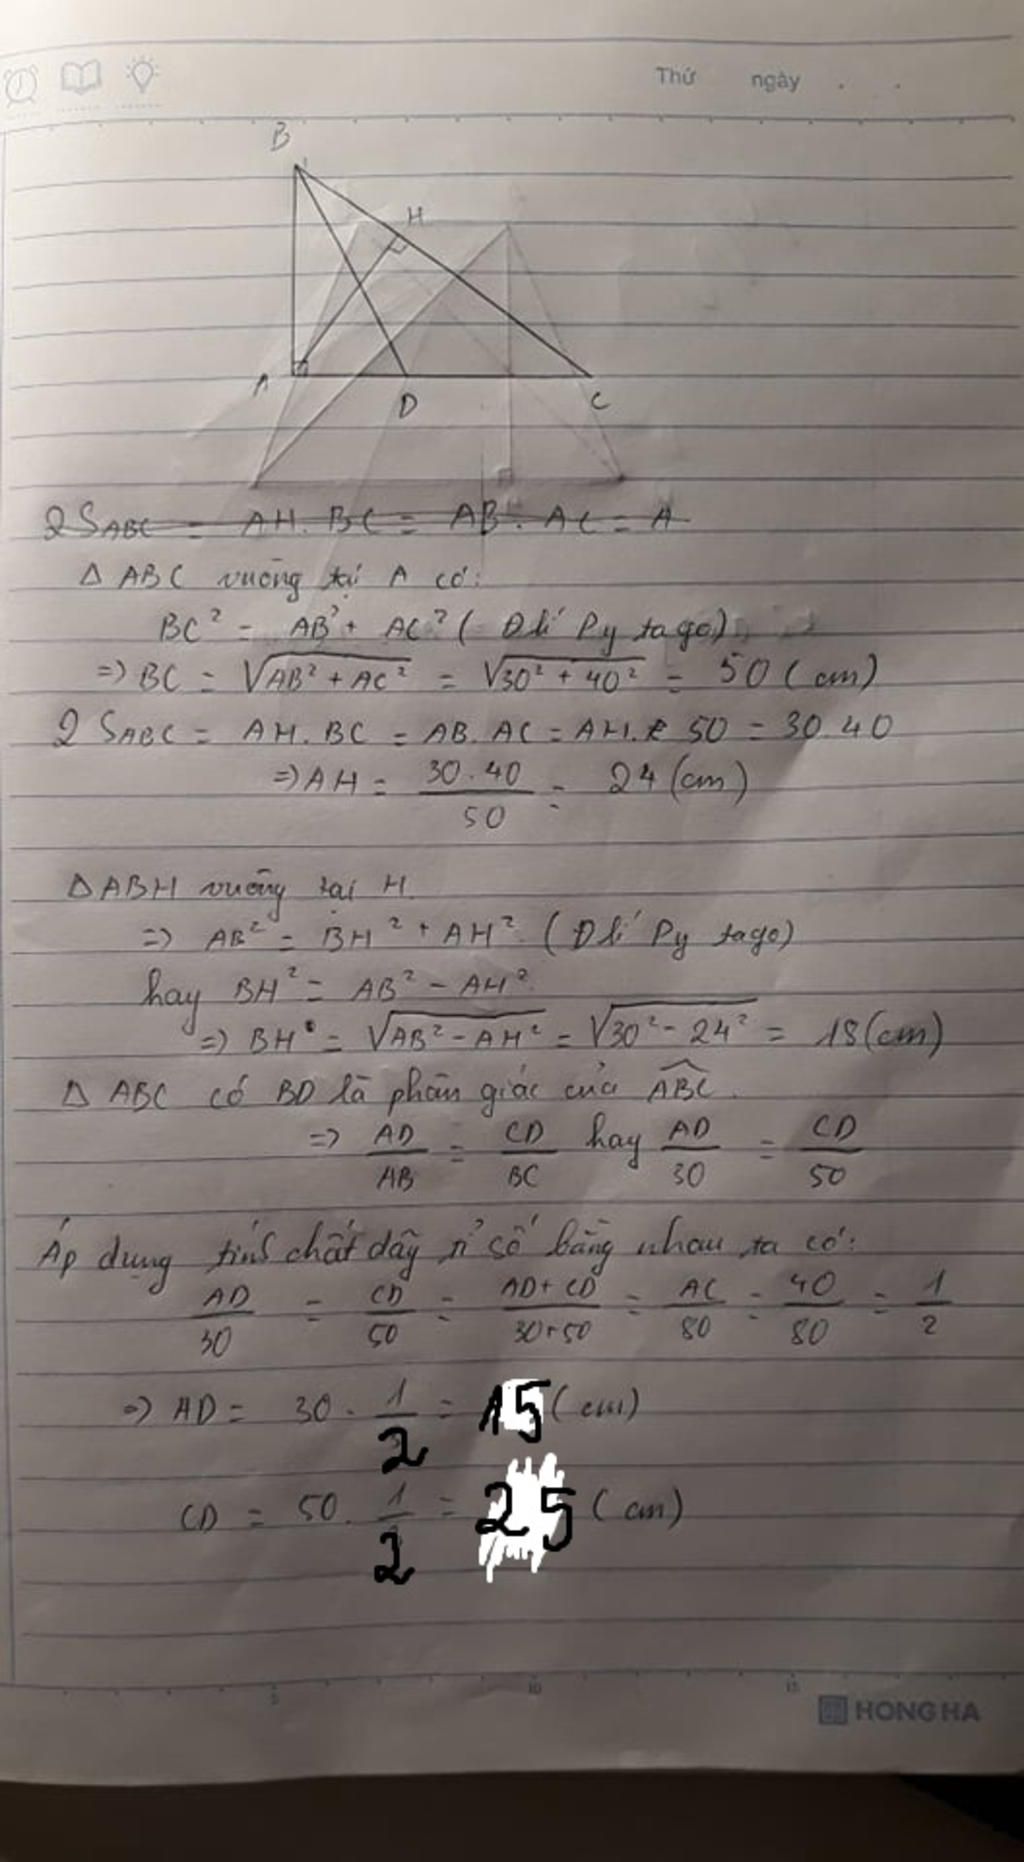 Thứ ngày . .
B
H
A D C
2 S_ABC = AH. BC = AB. AC = A
Δ ABC vuông tại A có:
BC² = AB² + AC² ( Đlí Py tago)
=> BC = √(AB² + AC²) = √(30² + 40²) = 50 ( cm)
2 S_ABC = AH. BC = AB. AC = AH. 50 = 30.40
=> AH = (30.40)/50 = 24 (cm)
Δ ABH vuông tại H
=> AB² = BH² + AH². ( Đlí Py tago)
hay BH² = AB² – AH²
=> BH = √(AB² – AH²) = √(30² – 24²) = 18 (cm)
Δ ABC có BD là phân giác của ABC.
=> AD/AB = CD/BC hay AD/30 = CD/50
Áp dụng tính chất dãy tỉ số bằng nhau ta có:
AD/30 = CD/50 = (AD + CD)/(30+50) = AC/80 = 40/80 = 1/2
=> AD = 30. 1/2 = 15 (cm)
CD = 50. 1/2 = 25 ( cm)
5 10 15
HONG HA